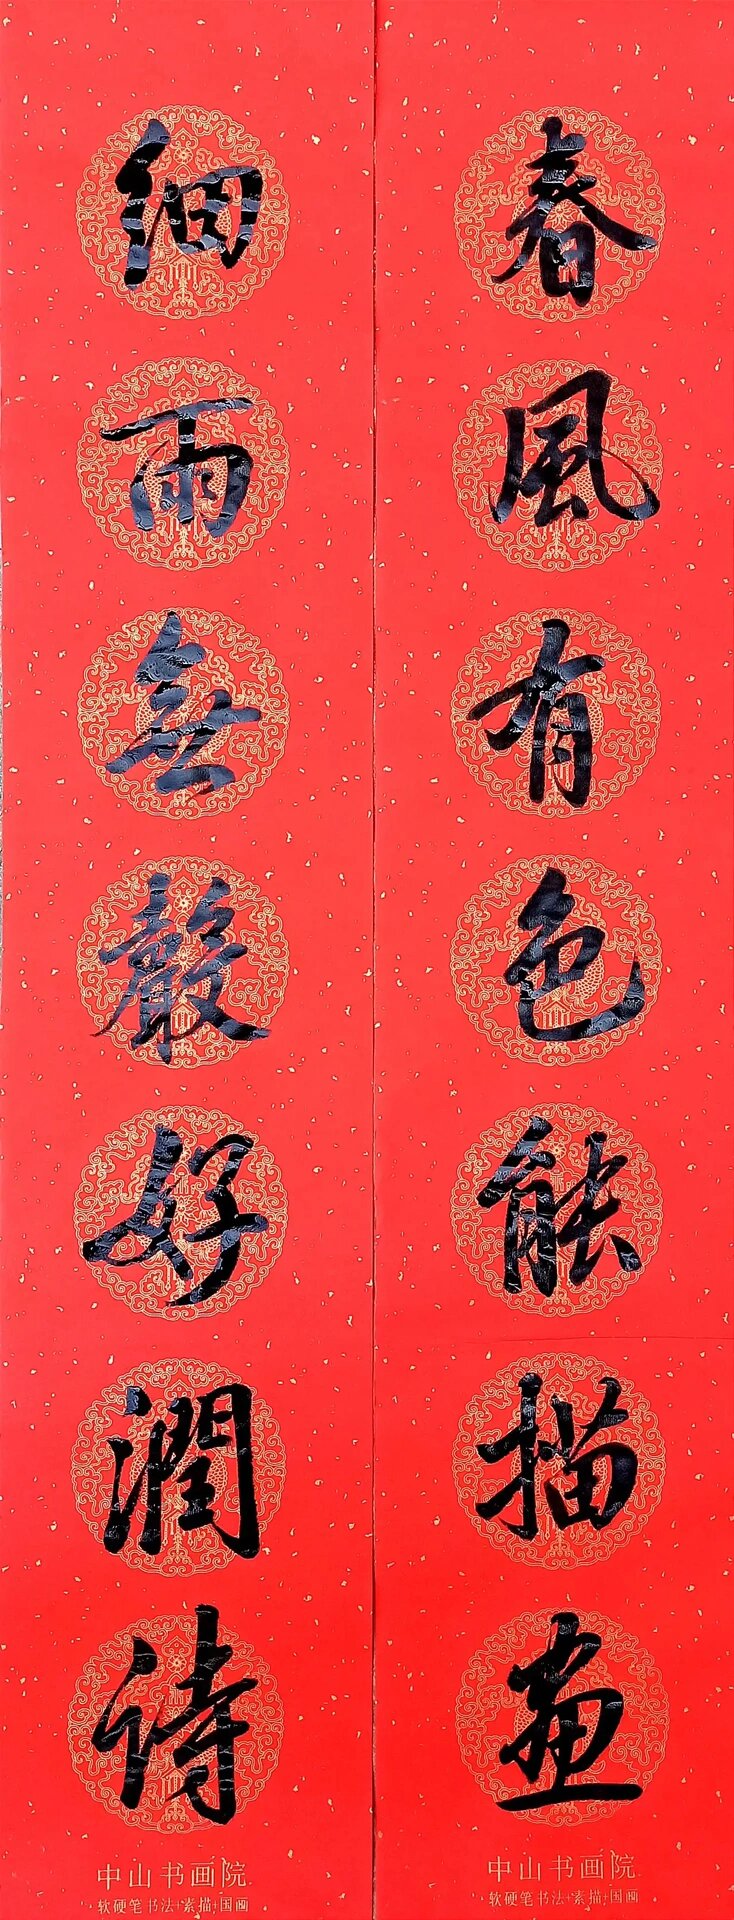 春風有色能描畫
中山书画院
软硬笔书法+素描+国画
細雨無聲好潤詩
中山书画院
软硬笔书法+素描+国画